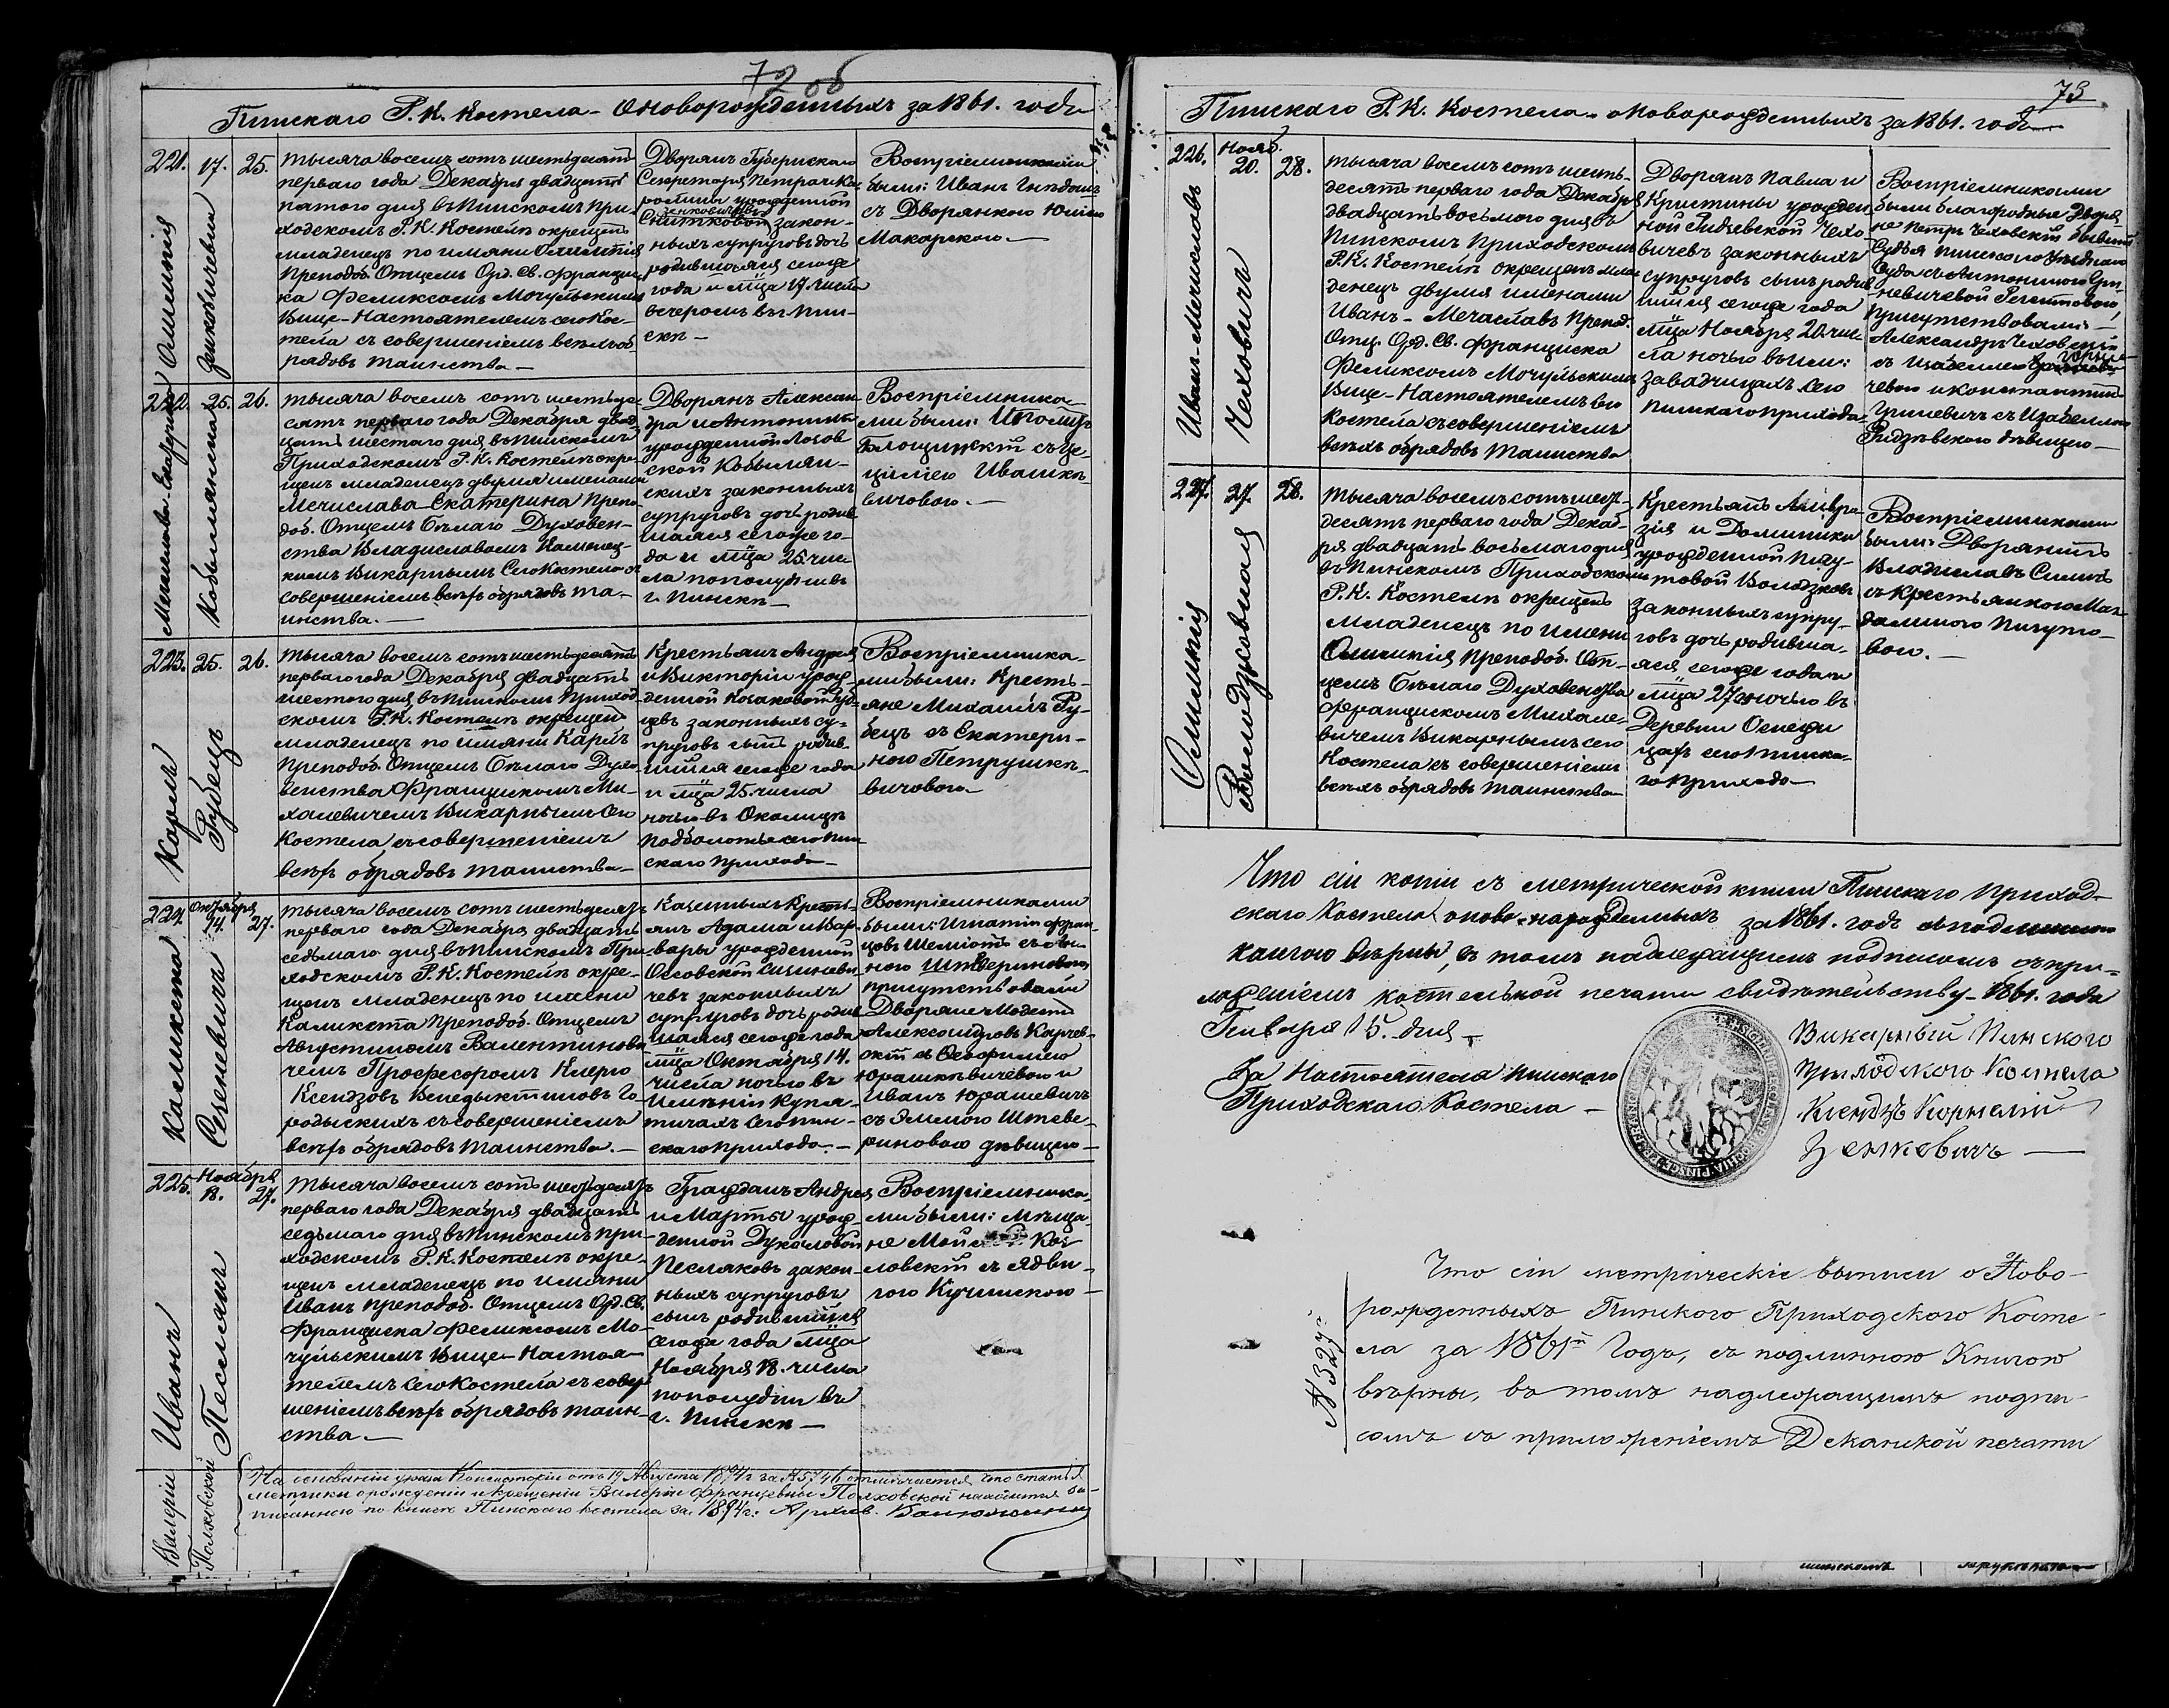 72 об
Пинскаго Р. К. Костела – О новорожденныхъ за 1861. годъ
221. 17. 25.
Олимпія
Зенковичевна
тысяча восемъ сотъ шестьдесятъ
перваго года Декабря двадцать
пятого дня въ Пинскомъ При-
ходскомъ Р. К. Костелѣ окрещенъ
младенецъ по имяни Олимпія
Преподоб. Отцемъ Орд. Св. Францис-
ка Феликсомъ Мочульскимъ
Вице-Настоятелемъ сего Кос-
тела съ совершеніемъ всѣхъ об-
рядовъ таинства —
Дворянъ Губернскаго
Секретаря Петра и Ка-
ролины урожденной
Снитковой закон-
ныхъ супруговъ дочь
родившаяся сегоже
года и мца 17. числа
вечеромъ въ г. Пин-
скѣ —
Воспріемниками
были: Иванъ
съ Дворянкою Юлію
Макарскою. —
222. 25. 26.
Мечислава-Екатерина
Кобылянска
тысяча восемъ сотъ шестьде-
сятъ перваго года Декабря два-
цать шестаго дня въ Пинскомъ
Приходскомъ Р. К. Костелѣ окре-
щенъ младенецъ двумя именами
Мечислава-Екатерина Препо-
доб. Отцемъ Бѣлаго Духовен-
ства Владиславомъ Каменец-
кимъ Викарнымъ Сего Костела съ
совершеніемъ всѣхъ обрядовъ та-
инства. —
Дворянъ Алексан
дра и Антонины
урожденной Лосов
ской Кобылян-
скихъ законныхъ
супруговъ дочь родив
шаяся сегоже го-
да и мца 25. чис
ла пополудни въ
г. Пинскѣ —
Воспріемника-
ми были:
Блощинскій съ Це-
циліею Ивашкѣ-
вичовою. —
223. 25. 26.
Кароль
Рубецъ
тысяча восемъ сотъ шестьдесятъ
перваго года Декабря двадцать
шестого дня въ Пинскомъ Приход-
скомъ Р. К. Костелѣ окрещенъ
младенецъ по имяни Карлъ
Преподоб. Отцемъ Бѣлаго Духо-
венства Францискомъ Ми-
халевичемъ Викарнымъ Сего
Костела съ совершеніемъ
всѣхъ обрядовъ таинства —
Крестьянъ Андрея
и Викторіи урож-
денной Козаковой Руб-
цевъ законныхъ су-
пруговъ сынъ родив-
шійся сегоже года
и мца 25. числа
ночью въ Околицѣ
Подболотье сего Пин
скаго прихода —
Воспріемника-
ми были: Кресть-
яне Михаилъ Ру-
бецъ съ Екатери-
ною Петрушкѣ-
вичовою —
224. Октября 14. 27.
Каликста
Сезеневична
тысяча восемъ сотъ шестьдесятъ
перваго года Декабря двадцать
седьмаго дня въ Пинскомъ При
ходскомъ Р. К. Костелѣ окре-
щенъ младенецъ по имени
Каликста Преподоб. Отцемъ
Августиномъ Валентинови-
чемъ Профессоромъ
Ксендзовъ Бенедыктиновъ Го
родыскихъ съ совершеніемъ
всѣхъ обрядовъ таинства. —
Казенныхъ Кресть-
янъ Адама и Вар-
вары урожденной
Осовской Сезеневи
чевъ законныхъ
супруговъ дочь родив
шаяся сегоже года
мца Октября 14.
числа ночью въ
Имѣніи Купя-
тичахъ сего Пин-
скаго прихода. —
Воспріемниками
были: Игнатій Фран-
цовъ съ
ною Штевериновою
присутствовали
Дворяне Модестъ
Александровъ Карчев-
скій съ Ософилею
Юрашкѣвичевою и
Иванъ Юрашевичъ
съ Эмилію Штеве-
риновою дѣвицею —
225. Ноября 18. 27.
Иванъ
Песлякъ
тысяча восемъ сотъ шестьдесятъ
перваго года Декабря двадцать
седьмаго дня въ Пинскомъ При-
ходскомъ Р. К. Костелѣ окре-
щенъ младенецъ по имяни
Иванъ преподоб. Отцемъ Орд. Св.
Франциска Феликсомъ Мо-
чульскимъ Вице-Настоя-
телемъ сего Костела съ совер
шеніемъ всѣхъ обрядовъ таин-
ства. —
Гражданъ Андрея
и Марты урож-
денной Дукаловой
Песляковъ закон-
ныхъ супруговъ
сынъ родившійся
сегоже года мца
Ноября 18. числа
пополудни въ
г. Пинскѣ —
Воспріемника-
ми были: мѣща-
не Коз-
ловскій съ Ядви-
гою Кучинскою —
Валеріи
Поляковской
На основаніи указа Консисторіи отъ 19 Августа 1894 г. за № 5746 отмѣчается, что статья
метрики о рожденіи и крещеніи Валеріи Францевны Поляковской находится за-
писанною по книгѣ Пинскаго костела за 1874 г. Архив.
73
Пинскаго Р. К. Костела – о Новорожденныхъ за 1861. годъ
226. Нояб. 20. 28.
Иванъ-Мечиславъ
Чеховичъ
тысяча восемъ сотъ шесть-
десятъ перваго года Декабря
двадцать восьмого дня въ
Пинскомъ Приходскомъ
Р. К. Костелѣ окрещенъ мла-
денецъ двумя именами
Иванъ-Мечаславъ Препод.
Отц. Орд. Св. Франциска
Феликсомъ Мочульскимъ
Вице-Настоятелемъ сего
Костела съ совершеніемъ
всѣхъ обрядовъ таинства
Дворянъ Павла и
Кристины урожден
ной Гидзевской Чехо
вичевъ законныхъ
супруговъ сынъ родив
шійся сегоже года
мца Ноября 20. чис
ла ночью въ имѣ:
завадчицахъ сего
Пинскаго прихода
Воспріемниками
были благородные Дворя-
не Петръ Чеховскій бывшій
Судья Пинскаго Уѣзднаго
Суда съ Антониною Гри-
невичевой Регентовою,
присутствовали: —
Александръ Чеховскій
съ Изабеллею
чевою и Константинъ
Гриневичъ съ Изабеллою
Гидзѣвскою дѣвицею —
227. 27. 28.
Олимпія
Володзковна
тысяча восемъ сотъ шесть-
десятъ перваго года Декаб-
ря двадцать восьмаго дня
въ Пинскомъ Приходскомъ
Р. К. Костелѣ окрещенъ
младенецъ по имени
Олимпія Преподоб. От-
цемъ Бѣлаго Духовенства
Францискомъ Михале-
вичемъ Викарнымъ сего
Костела съ совершеніемъ
всѣхъ обрядовъ таинства
Крестьянъ Амвро
зія и Доминики
урожденной Пичу-
товой Володзковъ
законныхъ супру-
говъ дочь родивша-
яся сегоже года и
мца 27. ночью въ
Деревни
сего Пинска-
го прихода —
Воспріемниками
были: Дворянинъ
Владиславъ
съ крестьянкою Маг-
далиною Пичуто-
вою. —
Что сіи копіи съ метрической книги Пинскаго Приход-
скаго Костела о ново-нарожденныхъ за 1861. годъ съ подлинною
книгою вѣрны, въ томъ надлежащимъ подписомъ съ при-
ложеніемъ костельной печати свидѣтельству – 1861. года
Генваря 15. дня —
За Настоятеля Пинскаго
Приходскаго Костела —
Викарный Пинскаго
Приходскаго Костела
Ксендзъ Корнелій
Зенкевичъ —
№ 327
Что сіи метрическіе выписи о Ново-
рожденныхъ Пинскаго Приходскаго Косте-
ла за 1861й Годъ, съ подлинною Книгою
вѣрны, въ томъ надлежащимъ подпи-
сомъ съ приложеніемъ Деканской печати